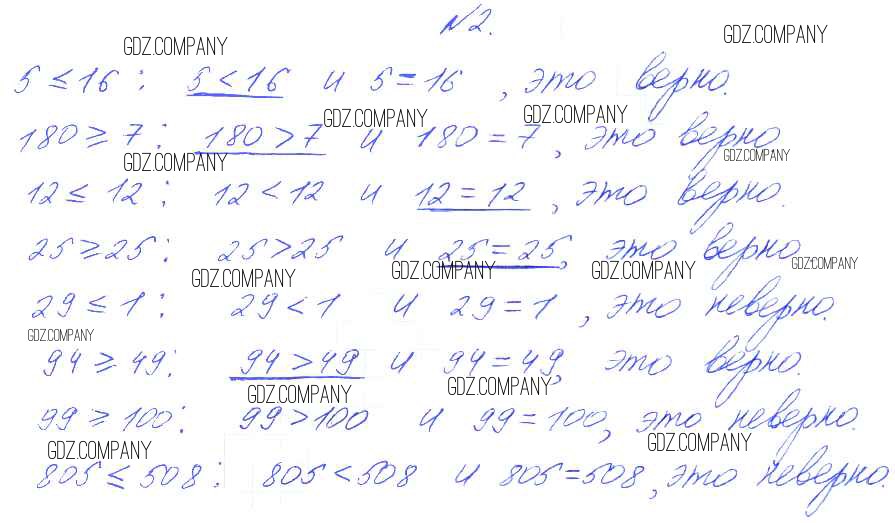 №2.
GDZ.COMPANY GDZ.COMPANY
5 ≤ 16 : 5 < 16 и 5 = 16 , это верно.
GDZ.COMPANY GDZ.COMPANY
180 ≥ 7 : 180 > 7 и 180 = 7 , это верно.
GDZ.COMPANY GDZ.COMPANY
12 ≤ 12 : 12 < 12 и 12 = 12 , это верно.
25 ≥ 25 : 25 > 25 и 25 = 25, это верно.
GDZ.COMPANY GDZ.COMPANY GDZ.COMPANY GDZ.COMPANY
29 ≤ 1 : 29 < 1 и 29 = 1 , это неверно.
GDZ.COMPANY
94 ≥ 49 : 94 > 49 и 94 = 49, это верно.
GDZ.COMPANY GDZ.COMPANY
99 ≥ 100 : 99 > 100 и 99 = 100, это неверно.
GDZ.COMPANY GDZ.COMPANY
805 ≤ 508 : 805 < 508 и 805 = 508, это неверно.